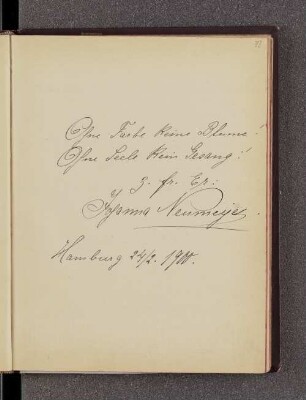 Ohne Farbe keine Blume!
Ohne Seele kein Gesang!
z. fr. Er.:
Johanna Neumeyer.
Hamburg 24/2. 1900.